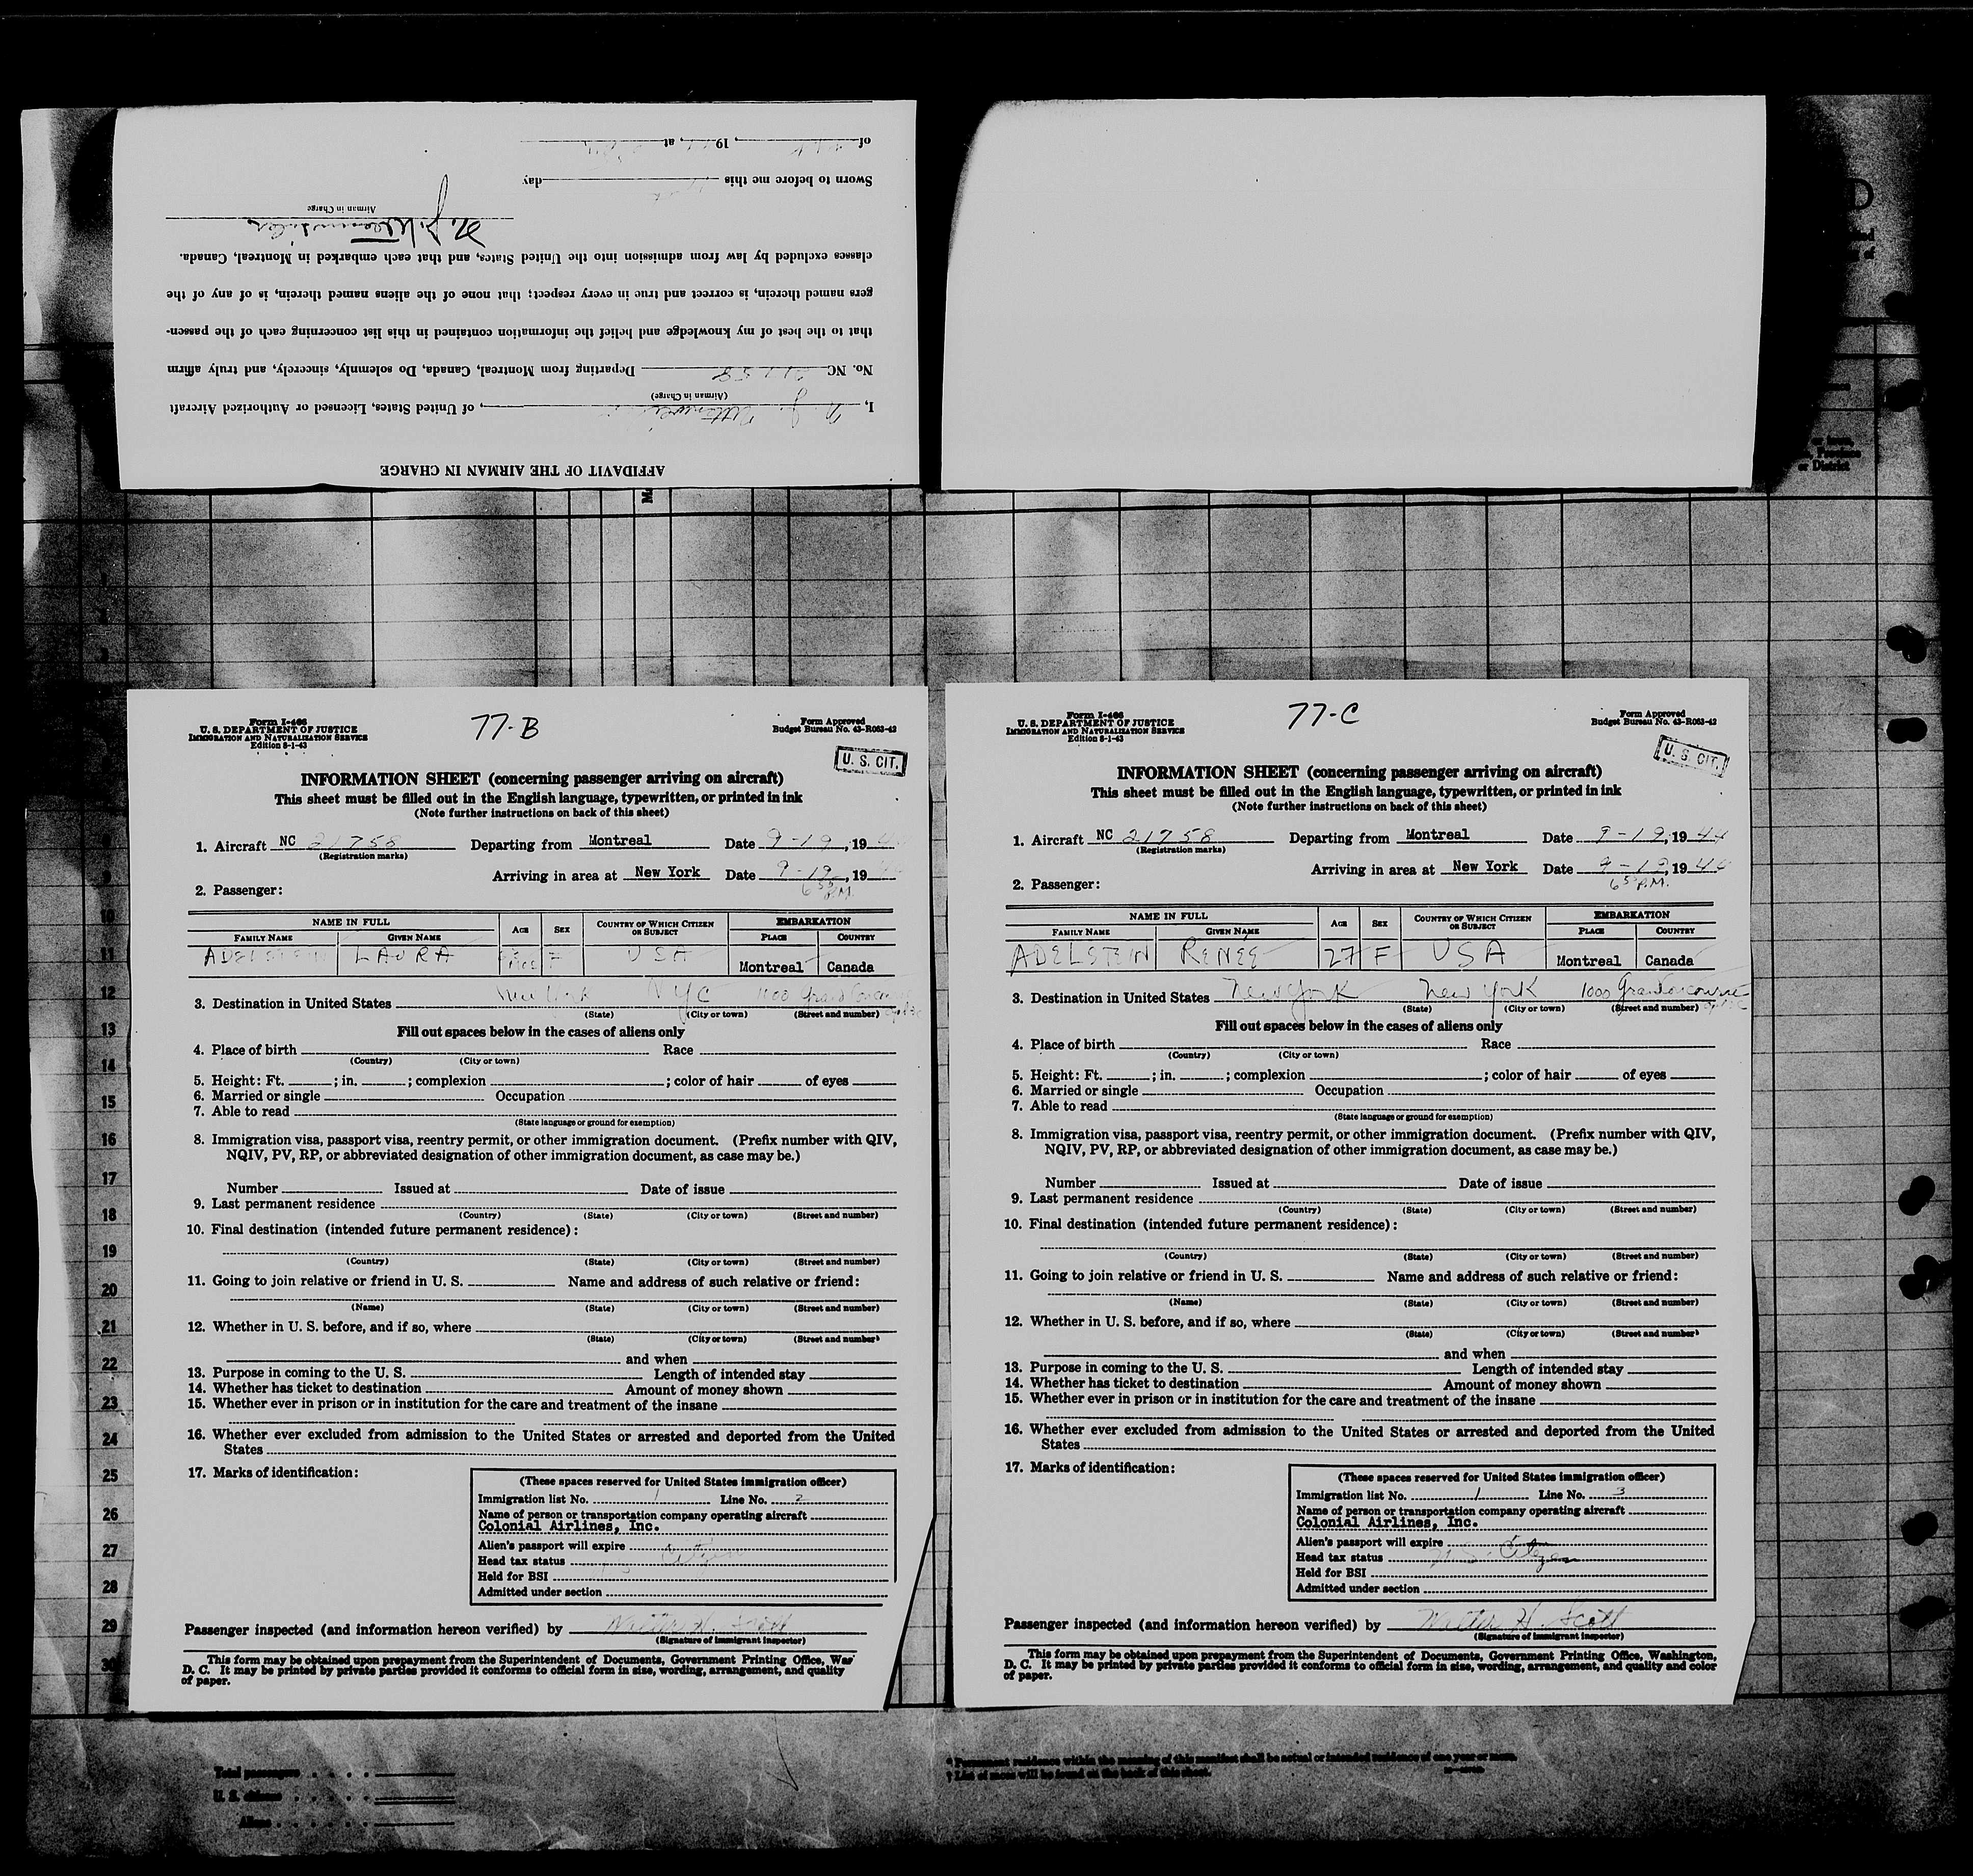 AFFIDAVIT OF THE AIRMAN IN CHARGE
I, , of United States, Licensed or Authorized Aircraft
(Airman in Charge)
No. NC 21758 Departing from Montreal, Canada, Do solemnly, sincerely, and truly affirm
that to the best of my knowledge and belief the information contained in this list concerning each of the passen-
gers named therein, is correct and true in every respect; that none of the aliens named therein, is of any of the
classes excluded by law from admission into the United States, and that each embarked in Montreal, Canada.
Airman in Charge
Sworn to before me this day
of , 19 , at
or Town,
, Province
or District
Form I-466
U. S. DEPARTMENT OF JUSTICE
IMMIGRATION AND NATURALIZATION SERVICE
Edition 8-1-43
77-B
Form Approved
Budget Bureau No. 43-R063-42
U. S. CIT.
INFORMATION SHEET (concerning passenger arriving on aircraft)
This sheet must be filled out in the English language, typewritten, or printed in ink
(Note further instructions on back of this sheet)
1. Aircraft NC 21758 Departing from Montreal Date 9-19, 19
(Registration marks)
Arriving in area at New York Date 9-19, 19
6 55 P.M.
2. Passenger:
NAME IN FULL AGE SEX COUNTRY OF WHICH CITIZEN OR SUBJECT EMBARKATION
FAMILY NAME GIVEN NAME PLACE COUNTRY
ADELSTEIN LAURA F USA Montreal Canada
3. Destination in United States New York NYC 1000 Grand Concourse
(State) (City or town) (Street and number)
Fill out spaces below in the cases of aliens only
4. Place of birth Race
(Country) (City or town)
5. Height: Ft. ; in. ; complexion ; color of hair of eyes
6. Married or single Occupation
7. Able to read
(State language or ground for exemption)
8. Immigration visa, passport visa, reentry permit, or other immigration document. (Prefix number with QIV,
NQIV, PV, RP, or abbreviated designation of other immigration document, as case may be.)
Number Issued at Date of issue
9. Last permanent residence
(Country) (State) (City or town) (Street and number)
10. Final destination (intended future permanent residence):
(Country) (State) (City or town) (Street and number)
11. Going to join relative or friend in U. S. Name and address of such relative or friend:
(Name) (State) (City or town) (Street and number)
12. Whether in U. S. before, and if so, where
(State) (City or town) (Street and number)
and when
13. Purpose in coming to the U. S. Length of intended stay
14. Whether has ticket to destination Amount of money shown
15. Whether ever in prison or in institution for the care and treatment of the insane
16. Whether ever excluded from admission to the United States or arrested and deported from the United
States
17. Marks of identification:
(These spaces reserved for United States immigration officer)
Immigration list No. 1 Line No. 2
Name of person or transportation company operating aircraft
Colonial Airlines, Inc.
Alien's passport will expire
Head tax status Citizen
Held for BSI
Admitted under section
Passenger inspected (and information hereon verified) by Walter H. Scott
(Signature of immigrant inspector)
This form may be obtained upon prepayment from the Superintendent of Documents, Government Printing Office, Was
D. C. It may be printed by private parties provided it conforms to official form in size, wording, arrangement, and quality
of paper.
Form I-466
U. S. DEPARTMENT OF JUSTICE
IMMIGRATION AND NATURALIZATION SERVICE
Edition 8-1-43
77-C
Form Approved
Budget Bureau No. 43-R063-42
U. S. CIT.
INFORMATION SHEET (concerning passenger arriving on aircraft)
This sheet must be filled out in the English language, typewritten, or printed in ink
(Note further instructions on back of this sheet)
1. Aircraft NC 21758 Departing from Montreal Date 9-19, 1944
(Registration marks)
Arriving in area at New York Date 9-19, 1944
6 55 P.M.
2. Passenger:
NAME IN FULL AGE SEX COUNTRY OF WHICH CITIZEN OR SUBJECT EMBARKATION
FAMILY NAME GIVEN NAME PLACE COUNTRY
ADELSTEIN RENÉE 27 F USA Montreal Canada
3. Destination in United States New York New York 1000 Grand Concourse
(State) (City or town) (Street and number)
Fill out spaces below in the cases of aliens only
4. Place of birth Race
(Country) (City or town)
5. Height: Ft. ; in. ; complexion ; color of hair of eyes
6. Married or single Occupation
7. Able to read
(State language or ground for exemption)
8. Immigration visa, passport visa, reentry permit, or other immigration document. (Prefix number with QIV,
NQIV, PV, RP, or abbreviated designation of other immigration document, as case may be.)
Number Issued at Date of issue
9. Last permanent residence
(Country) (State) (City or town) (Street and number)
10. Final destination (intended future permanent residence):
(Country) (State) (City or town) (Street and number)
11. Going to join relative or friend in U. S. Name and address of such relative or friend:
(Name) (State) (City or town) (Street and number)
12. Whether in U. S. before, and if so, where
(State) (City or town) (Street and number)
and when
13. Purpose in coming to the U. S. Length of intended stay
14. Whether has ticket to destination Amount of money shown
15. Whether ever in prison or in institution for the care and treatment of the insane
16. Whether ever excluded from admission to the United States or arrested and deported from the United
States
17. Marks of identification:
(These spaces reserved for United States immigration officer)
Immigration list No. 1 Line No. 3
Name of person or transportation company operating aircraft
Colonial Airlines, Inc.
Alien's passport will expire
Head tax status U. S. Citizen
Held for BSI
Admitted under section
Passenger inspected (and information hereon verified) by Walter H. Scott
(Signature of immigrant inspector)
This form may be obtained upon prepayment from the Superintendent of Documents, Government Printing Office, Washington,
D. C. It may be printed by private parties provided it conforms to official form in size, wording, arrangement, and quality and color
of paper.
10
11
12
13
14
15
16
17
18
19
20
21
22
23
24
25
26
27
28
29
30
Total passengers
U. S. citizens
Aliens
* Permanent residence within the meaning of this manifest shall be actual or intended residence of one year or more.
† List of races will be found on the back of this sheet.